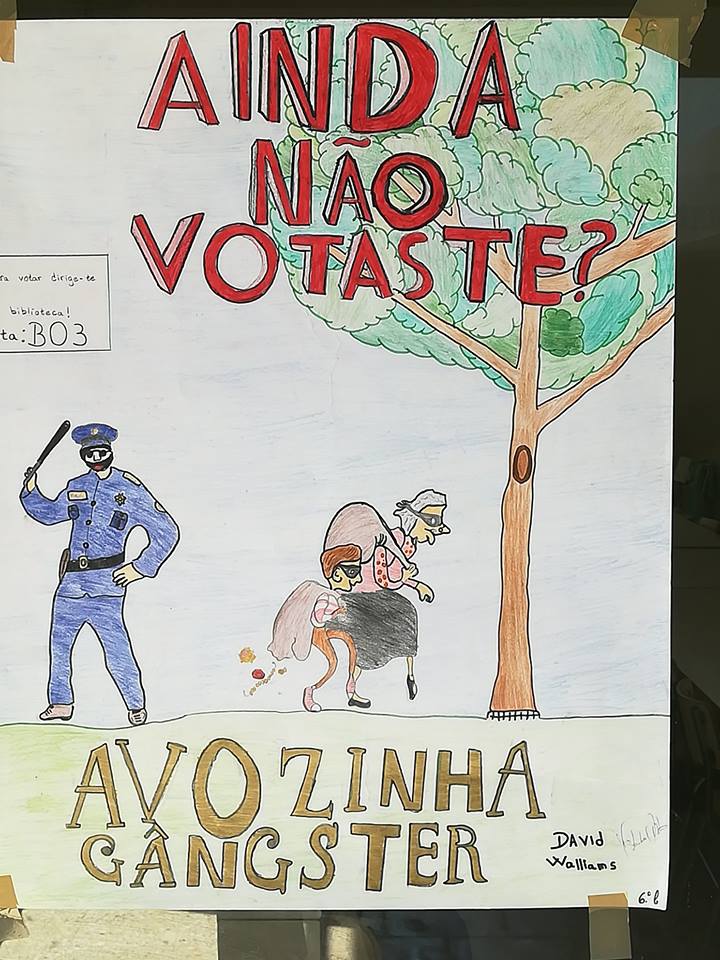 AINDA
NÃO
VOTASTE?
ra votar dirige-te
biblioteca!
ta: BO3
AVOZINHA
GÂNGSTER
DAVID
Walliams
6.º